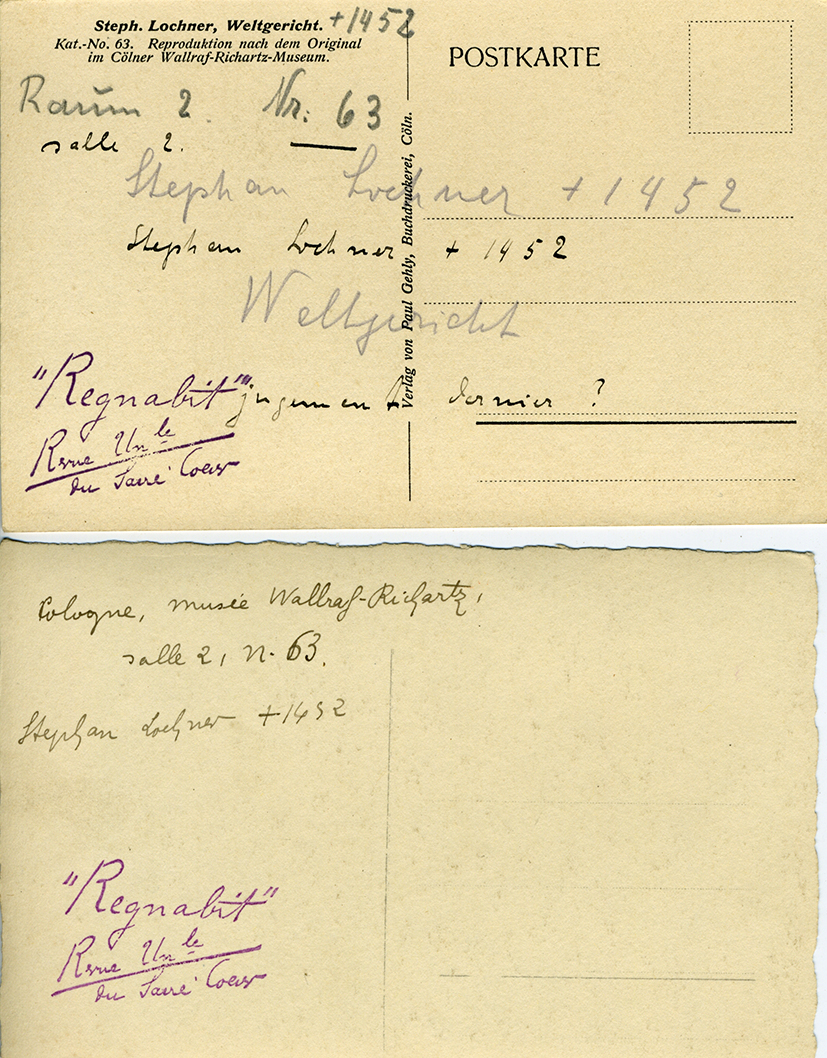 Steph. Lochner, Weltgericht. +1452
Kat.-No. 63. Reproduktion nach dem Original
im Cölner Wallraf-Richartz-Museum.
POSTKARTE
Raum 2. Nr: 63
salle 2.
Stephan Lochner +1452
Stephan Lochner +1452
Weltgericht
jugement dernier ?
"Regnabit"
Revue Unle
du Sacré Coeur
Verlag von Paul Gehly, Buchdruckerei, Cöln.
Cologne, musée Wallraf-Richartz,
salle 2, n. 63.
Stephan Lochner +1452
"Regnabit"
Revue Unle
du Sacré Coeur